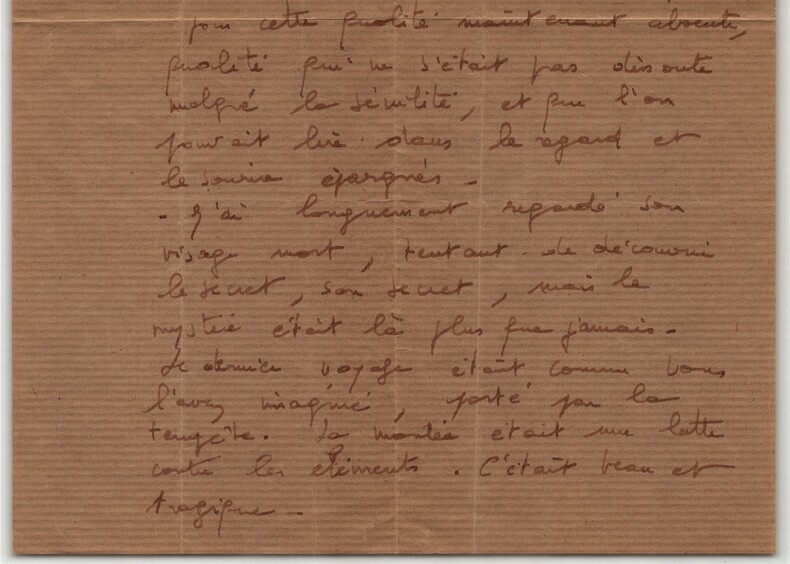 pour cette qualité maintenant absente,
qualité qui ne s'était pas dissoute
malgré la sénilité, et que l'on
pouvait lire dans le regard et
le sourire épargnés -
- J'ai longuement regardé son
visage mort, tentant de découvrir
le secret, son secret, mais le
mystère était là plus que jamais -
Le dernier voyage était comme vous
l'avez imaginé, porté par la
tempête. La montée était une lutte
contre les éléments. C'était beau et
tragique -